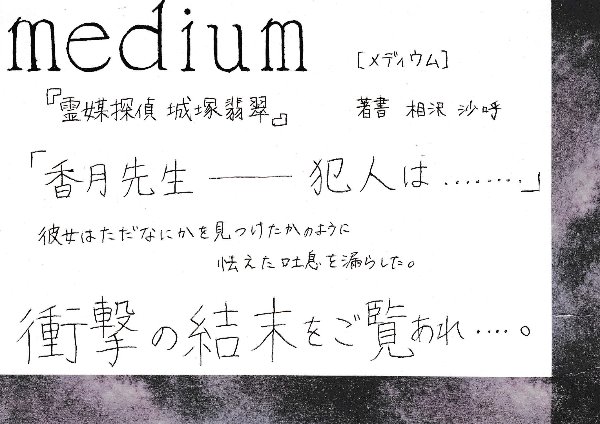 medium [メディウム]
『霊媒探偵 城塚翡翠』 著書 相沢 沙呼
「香月先生 ―― 犯人は ‥‥‥‥」
彼女はただなにかを見つけたかのように
怯えた吐息を漏らした。
衝撃の結末をご覧あれ‥‥。